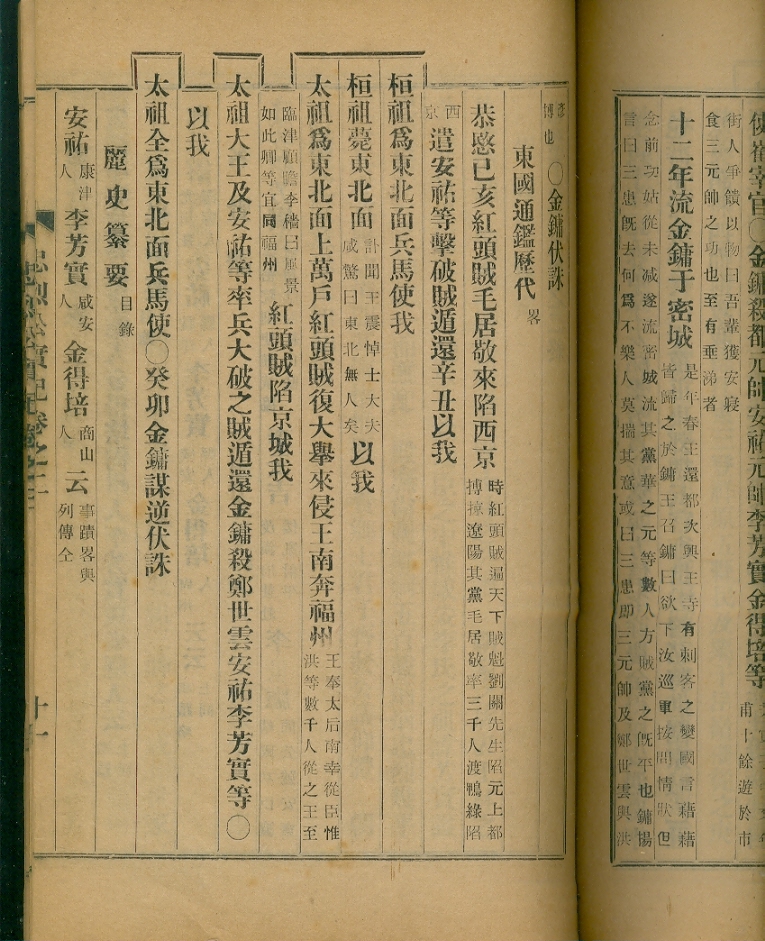 使 宰官○金鏞殺都元帥安祐元帥李芳實金得培等
甫十餘遊於市
街人爭饋以物曰吾輩獲安寢
食三元帥之功也至有垂涕者
十二年流金鏞于密城
是年春王還都次興王寺有刺客之變國言藉藉
皆歸之於鏞王召鏞曰欲下汝巡軍按問情狀但
念前功姑從末減遂流密城流其黨華之元等數人方賊黨之旣平也鏞揚
言曰三患旣去何爲不樂人莫揣其意或曰三患卽三元帥及鄭世雲與洪
彥
博也
○金鏞伏誅
東國通鑑歷代畧
恭愍己亥紅頭賊毛居敬來陷西京
時紅頭賊遍天下賊魁劉關先生陷元上都
摶掠遼陽其黨毛居敬率三千人渡鴨綠陷
西
京
遣安祐等擊破賊遁還辛丑以我
桓祖爲東北面兵馬使我
桓祖薨東北面
訃聞王震悼士大夫
咸驚曰東北無人矣
以我
太祖爲東北面上萬戶紅頭賊復大舉來侵王南奔福州
王奉太后南幸從臣惟
洪等數千人從之王至
臨津顧瞻李穡曰風景
如此卿等宜同福州
紅頭賊陷京城我
太祖大王及安祐等率兵大破之賊遁還金鏞殺鄭世雲安祐李芳實等○
以我
太祖全爲東北面兵馬使○癸卯金鏞謀逆伏誅
麗史纂要目錄
安祐
康津
人
李芳實
咸安
人
金得培
商山
人
云
事蹟畧與
列傳仝
忠烈公實記卷之二
十一